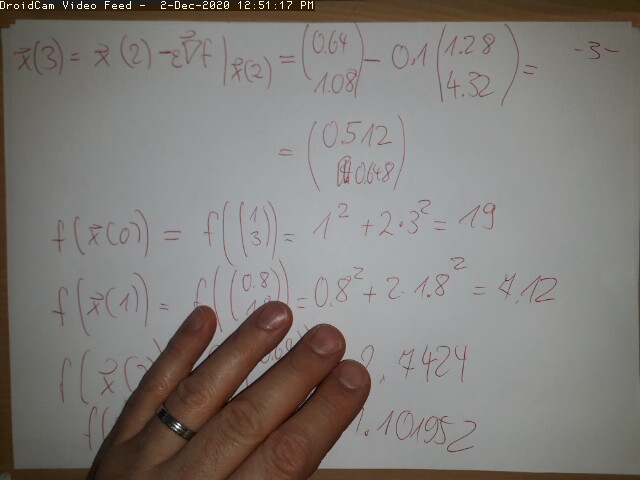 DroidCam Video Feed - 2-Dec-2020 12:51:17 PM
-3-
x⃗(3) = x⃗(2) - ε∇⃗f |x⃗(2) = (0.64 1.08) - 0.1 (1.28 4.32) =
= (0.512 0.648)
f(x⃗(0)) = f((1 3)) = 1² + 2·3² = 19
f(x⃗(1)) = f((0.8 1.8)) = 0.8² + 2·1.8² = 7.12
f(x⃗(2) 2.7424
f( 1.101952